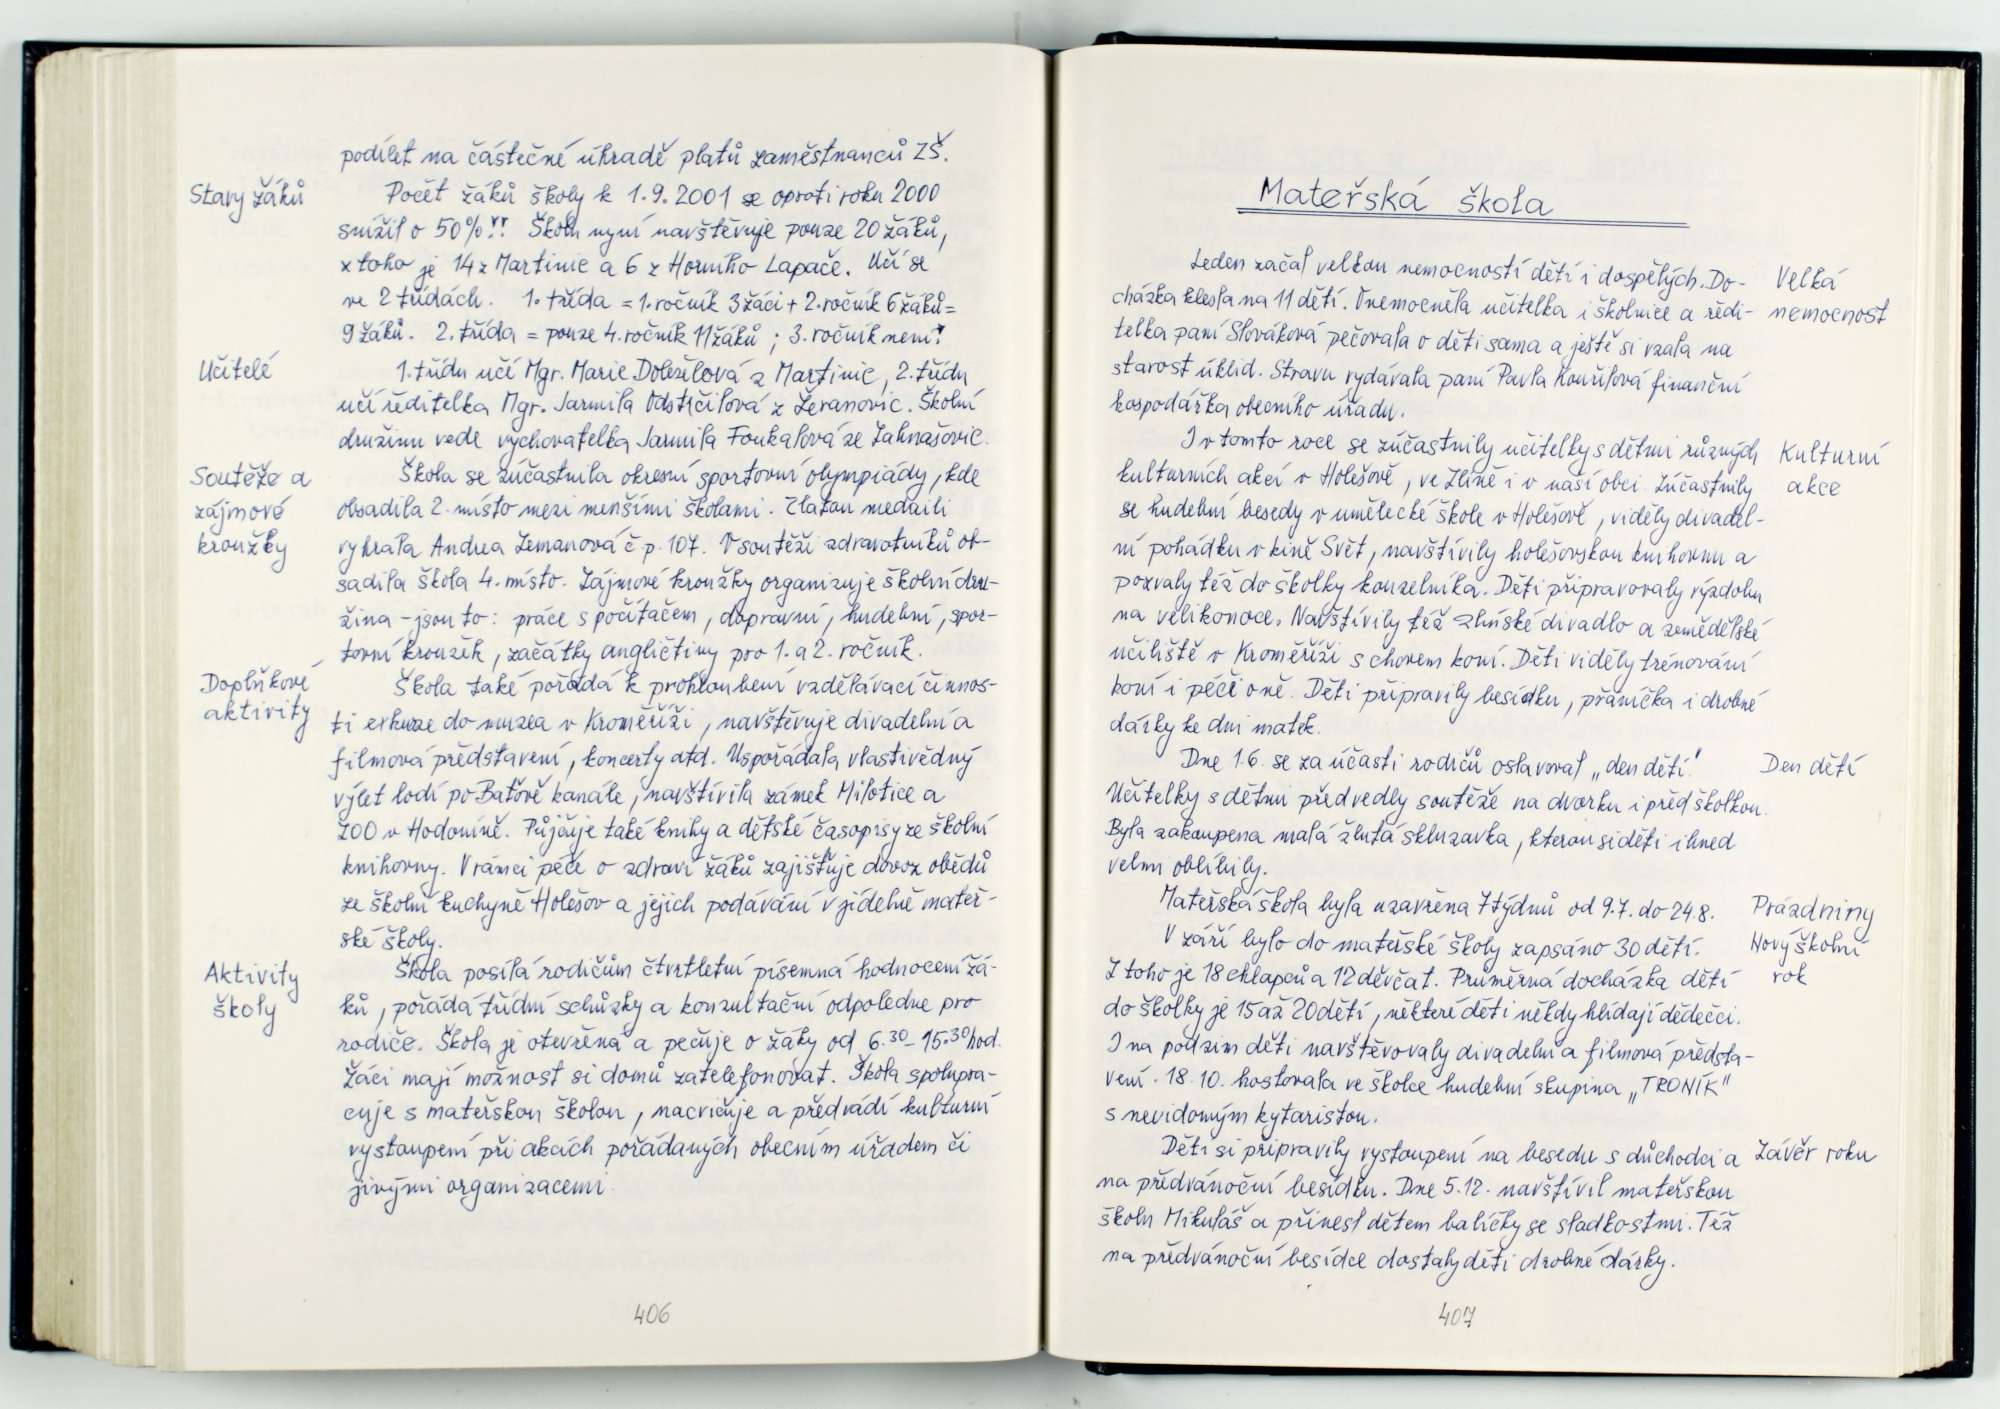 podílet na částečné úhradě platů zaměstnanců ZŠ.
Stavy žáků
Počet žáků školy k 1.9.2001 se oproti roku 2000
snížil o 50%!! Školu nyní navštěvuje pouze 20 žáků,
z toho je 14 z Martinic a 6 z Horního Lapače. Učí se
ve 2 třídách. 1. třída = 1. ročník 3 žáci + 2. ročník 6 žáků =
9 žáků. 2. třída = pouze 4. ročník 11 žáků ; 3. ročník není!
Učitelé
1. třídu učí Mgr. Marie Doleželová z Martinic, 2. třídu
učí ředitelka Mgr. Jarmila Odstrčilová z Žeranovic. Školní
družinu vede vychovatelka Jarmila Foukalová ze Zahnašovic.
Soutěže a
zájmové
kroužky
Škola se zúčastnila okresní sportovní olympiády, kde
obsadila 2. místo mezi menšími školami. Zlatou medaili
vyhrála Andrea Zemanová č.p. 107. V soutěži zdravotníků ob-
sadila škola 4. místo. Zájmové kroužky organizuje školní dru-
žina - jsou to: práce s počítačem, dopravní, hudební, spor-
tovní kroužek, začátky angličtiny pro 1. a 2. ročník.
Doplňkové
aktivity
Škola také pořádá k prohloubení vzdělávací činnos-
ti exkuze do muzea v Kroměříži, navštěvuje divadelní a
filmová představení, koncerty atd. Uspořádala vlastivědný
výlet lodí po Baťově kanále, navštívila zámek Milotice a
ZOO v Hodoníně. Půjčuje také knihy a dětské časopisy ze školní
knihovny. V rámci péče o zdraví žáků zajišťuje dovoz obědů
ze školní kuchyně Holešov a jejich podávání v jídelně mateř-
ské školy.
Aktivity
školy
Škola posílá rodičům čtvrtletní písemná hodnocení žá-
ků, pořádá třídní schůzky a konzultační odpoledne pro
rodiče. Škola je otevřena a pečuje o žáky od 6.30 - 15.30 hod.
Žáci mají možnost si domů zatelefonovat. Škola spolupra-
cuje s mateřskou školou, nacvičuje a předvádí kulturní
vystoupení při akcích pořádaných obecním úřadem či
jinými organizacemi.
406
Mateřská škola
Leden začal velkou nemocností dětí i dospělých. Do-
cházka klesla na 11 dětí. Onemocněla učitelka i školnice a ředi-
telka paní Slováková pečovala o děti sama a ještě si vzala na
starost úklid. Stravu vydávala paní Pavla Kouřilová finanční
hospodářka obecního úřadu.
Velká
nemocnost
I v tomto roce se zúčastnily učitelky s dětmi různých
kulturních akcí v Holešově, ve Zlíně i v naší obci. Zúčastnily
se hudební besedy v umělecké škole v Holešově, viděly divadel-
ní pohádku v kině Svět, navštívily holešovskou knihovnu a
pozvaly též do školky kouzelníka. Děti připravovaly výzdobu
na velikonoce. Navštívily též zlínské divadlo a zemědělské
učiliště v Kroměříži s chovem koní. Děti viděly trénování
koní i péči o ně. Děti připravily besídku, přáníčka i drobné
dárky ke dni matek.
Kulturní
akce
Dne 1.6. se za účasti rodičů oslavoval „den dětí."
Učitelky s dětmi předvedly soutěže na dvorku i před školkou.
Byla zakoupena malá žlutá skluzavka, kterou si děti ihned
velmi oblíbily.
Den dětí
Mateřská škola byla uzavřena 7 týdnů od 9.7. do 24.8.
Prázdniny
V září bylo do mateřské školy zapsáno 30 dětí.
Z toho je 18 chlapců a 12 děvčat. Průměrná docházka dětí
do školky je 15 až 20 dětí, některé děti někdy hlídají dědečci.
I na podzim děti navštěvovaly divadelní a filmová předsta-
vení. 18.10. hostovala ve školce hudební skupina „TRONÍK"
s nevidomým kytaristou.
Nový školní
rok
Děti si připravily vystoupení na besedu s důchodci a
na předvánoční besídku. Dne 5.12. navštívil mateřskou
školu Mikuláš a přinesl dětem balíčky se sladkostmi. Též
na předvánoční besídce dostaly děti drobné dárky.
Závěr roku
407